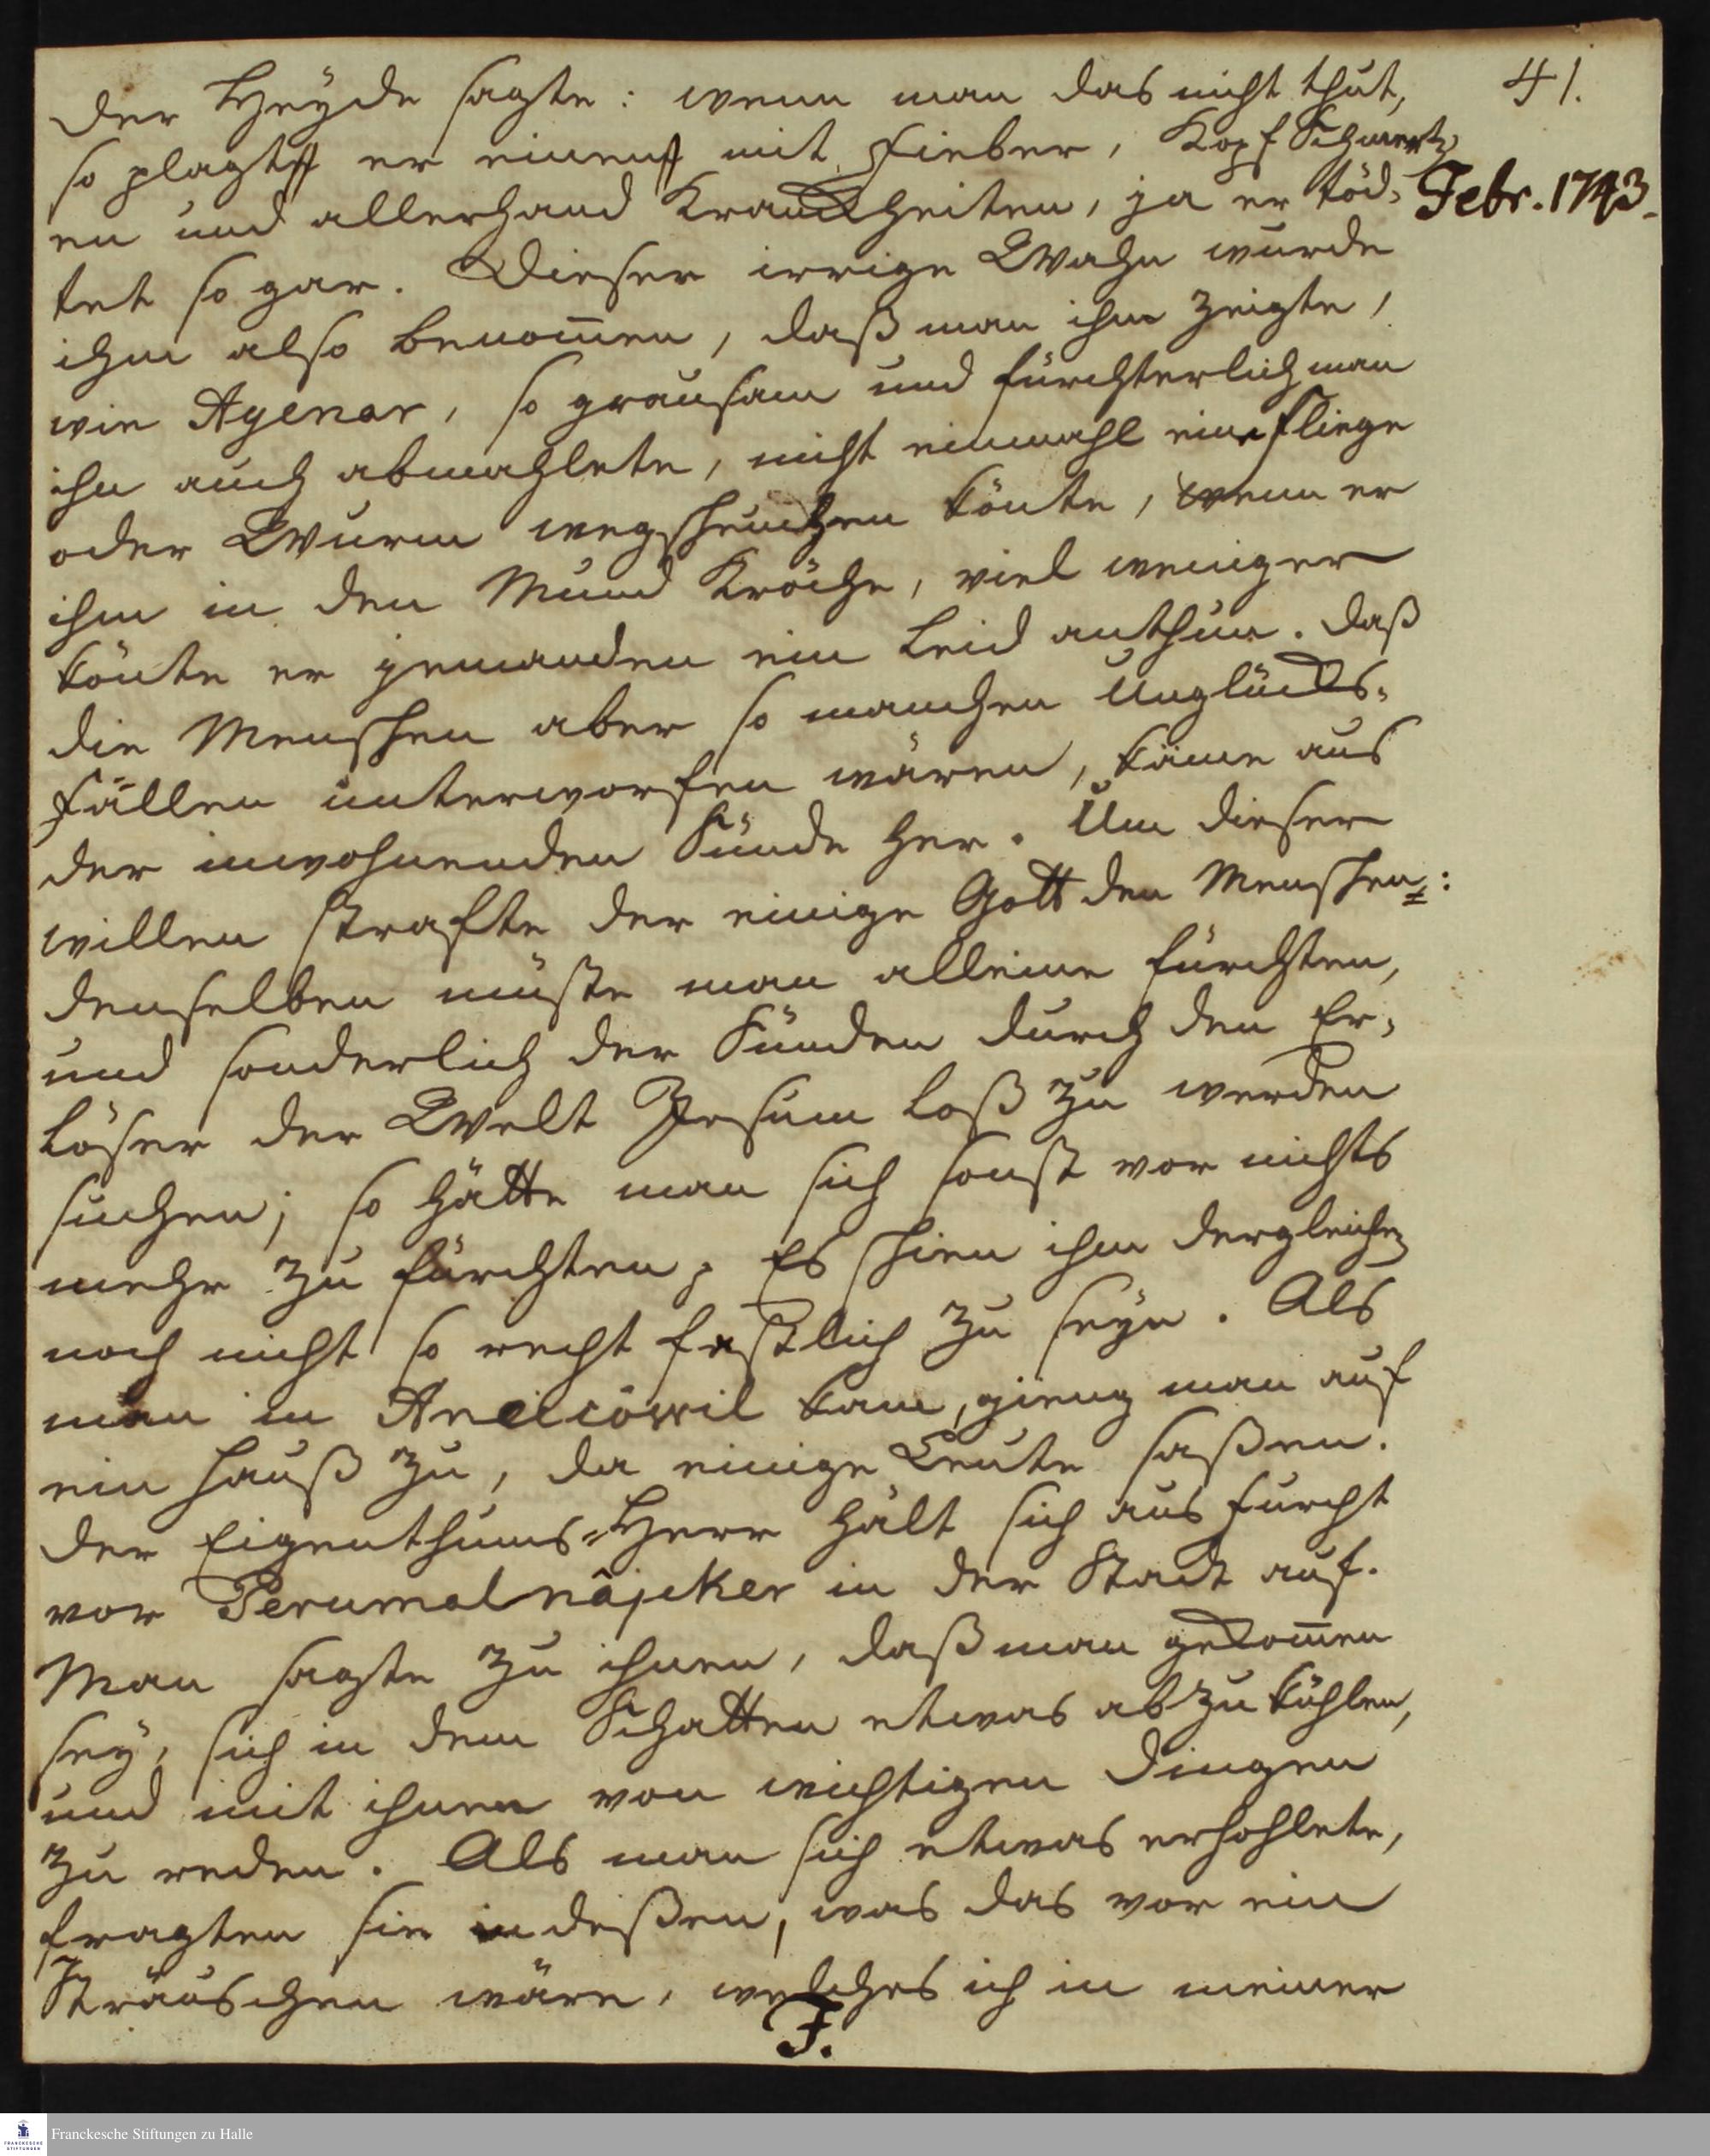 41.
Der Heyde sagte: wenn man das nicht thut,
so plagt er einen mit Fieber, Kopf Schmertz-
Febr. 1743.
en und allerhand Kranckheiten, ja er töd-
tet so gar. Dieser irrige Wahn wurde
ihm also benom̄en, daß man ihm zeigte,
wie Ayenar, so grausam und fürchterlich man
ihn auch abmahlete, nicht einmahl eine Fliege
oder Wurm wegscheuchen könte, wenn er
ihm in den Mund kröche, viel weniger
könte er jemanden ein Leid anthun. Daß
die Menschen aber so manchen Unglücks-
Fällen unterworfen wären, käme aus
der inwohnenden Sünde her. Um dieser
willen strafte der einige Gott den Menschen:
denselben müste man alleine fürchten,
und sonderlich der Sünden durch den Er-
löser der Welt Jesum loß zu werden
suchen; so hätte man sich sonst vor nichts
mehr zu fürchten. Es schien ihm dergleichen
noch nicht so recht faßlich zu seyn. Als
man in kam, gieng man auf
ein Hauß zu, da einige Leute saßen.
Der Eigenthums-Herr hält sich aus Furcht
vor Perumalnâjcker in der Stadt auf.
Man sagte zu ihnen, daß man gekom̄en
sey, sich in dem Schatten etwas abzukühlen,
und mit ihnen von wichtigen Dingen
zu reden. Als man sich etwas erhohlete,
fragten sie indeßen, was das vor ein
Sträuschen wäre, welches ich in meiner
F.
Franckesche Stiftungen zu Halle